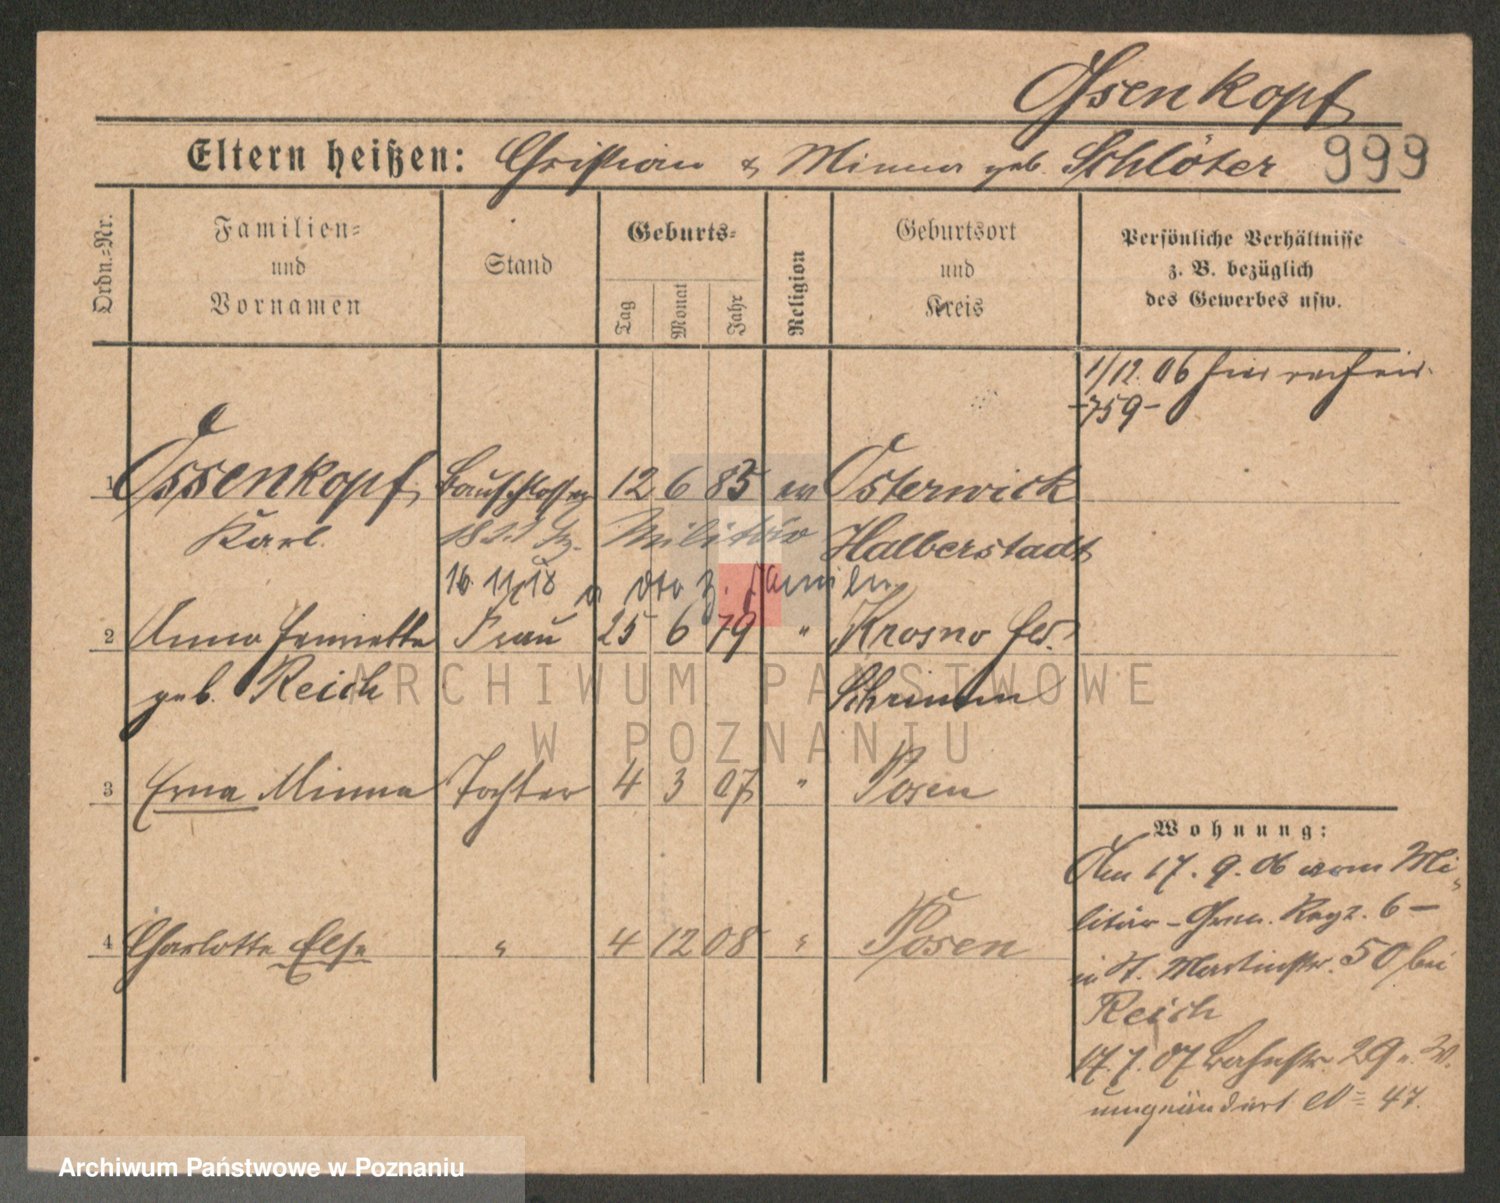 Ossenkopf
Eltern heißen: Christian & Minna geb. Schlöter 999
Ordn.-Nr.
Familien-
und
Vornamen
Stand
Geburts-
Tag
Monat
Jahr
Religion
Geburtsort
und
Kreis
Persönliche Verhältnisse
z. B. bezüglich
des Gewerbes usw.
1/12. 06 hier
-759-
1 Ossenkopf Bauschlosser 12 6 85 ev Osterwick
Karl. Militär Halberstadt
16. 11. 18 z. Familie
2 Anna Henriette Frau 25 6 79 " Krosno
geb. Reich Schrimm
3 Erna Minna Tochter 4 3 07 " Posen
4 Charlotte Else " 4 12 08 " Posen
Wohnung:
Am 17. 9. 06 vom Mi-
litär - Gren. Regt. 6 -
in St. Martinstr. 50 bei
Reich
17. 7. 07 Bahnstr. 29
umgeändert No 47.
ARCHIWUM PAŃSTWOWE
W POZNANIU
Archiwum Państwowe w Poznaniu